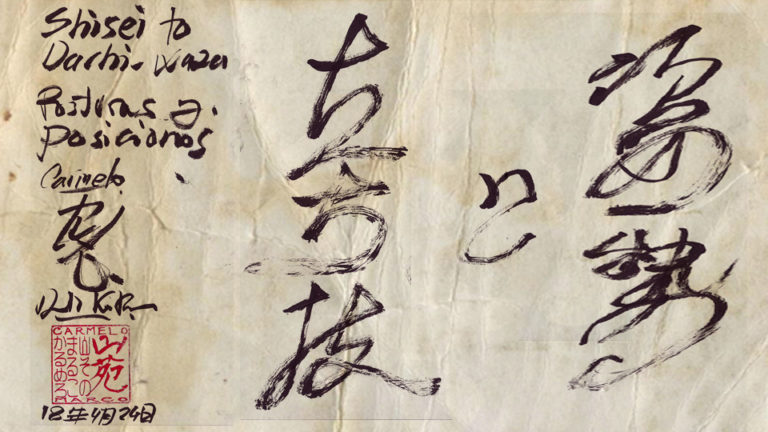 姿勢
と
立ち技
Shisei to
Dachi-waza
Posturas y
posiciones
Carmelo
CARMELO
山苑
MARCO
18年4月24日